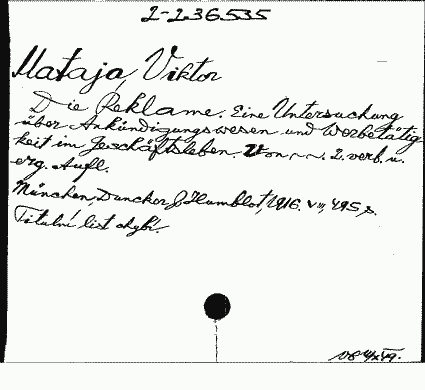 2-236.535
Mataja, Viktor
Die Reklame. Eine Untersuchung
über Ankündigungswesen und Werbetätig-
keit im Geschäftsleben. Von ... 2. verb. u.
erg. Aufl.
München, Duncker & Humblot, 1916. VII, 495 s.
Titulní list chybí.